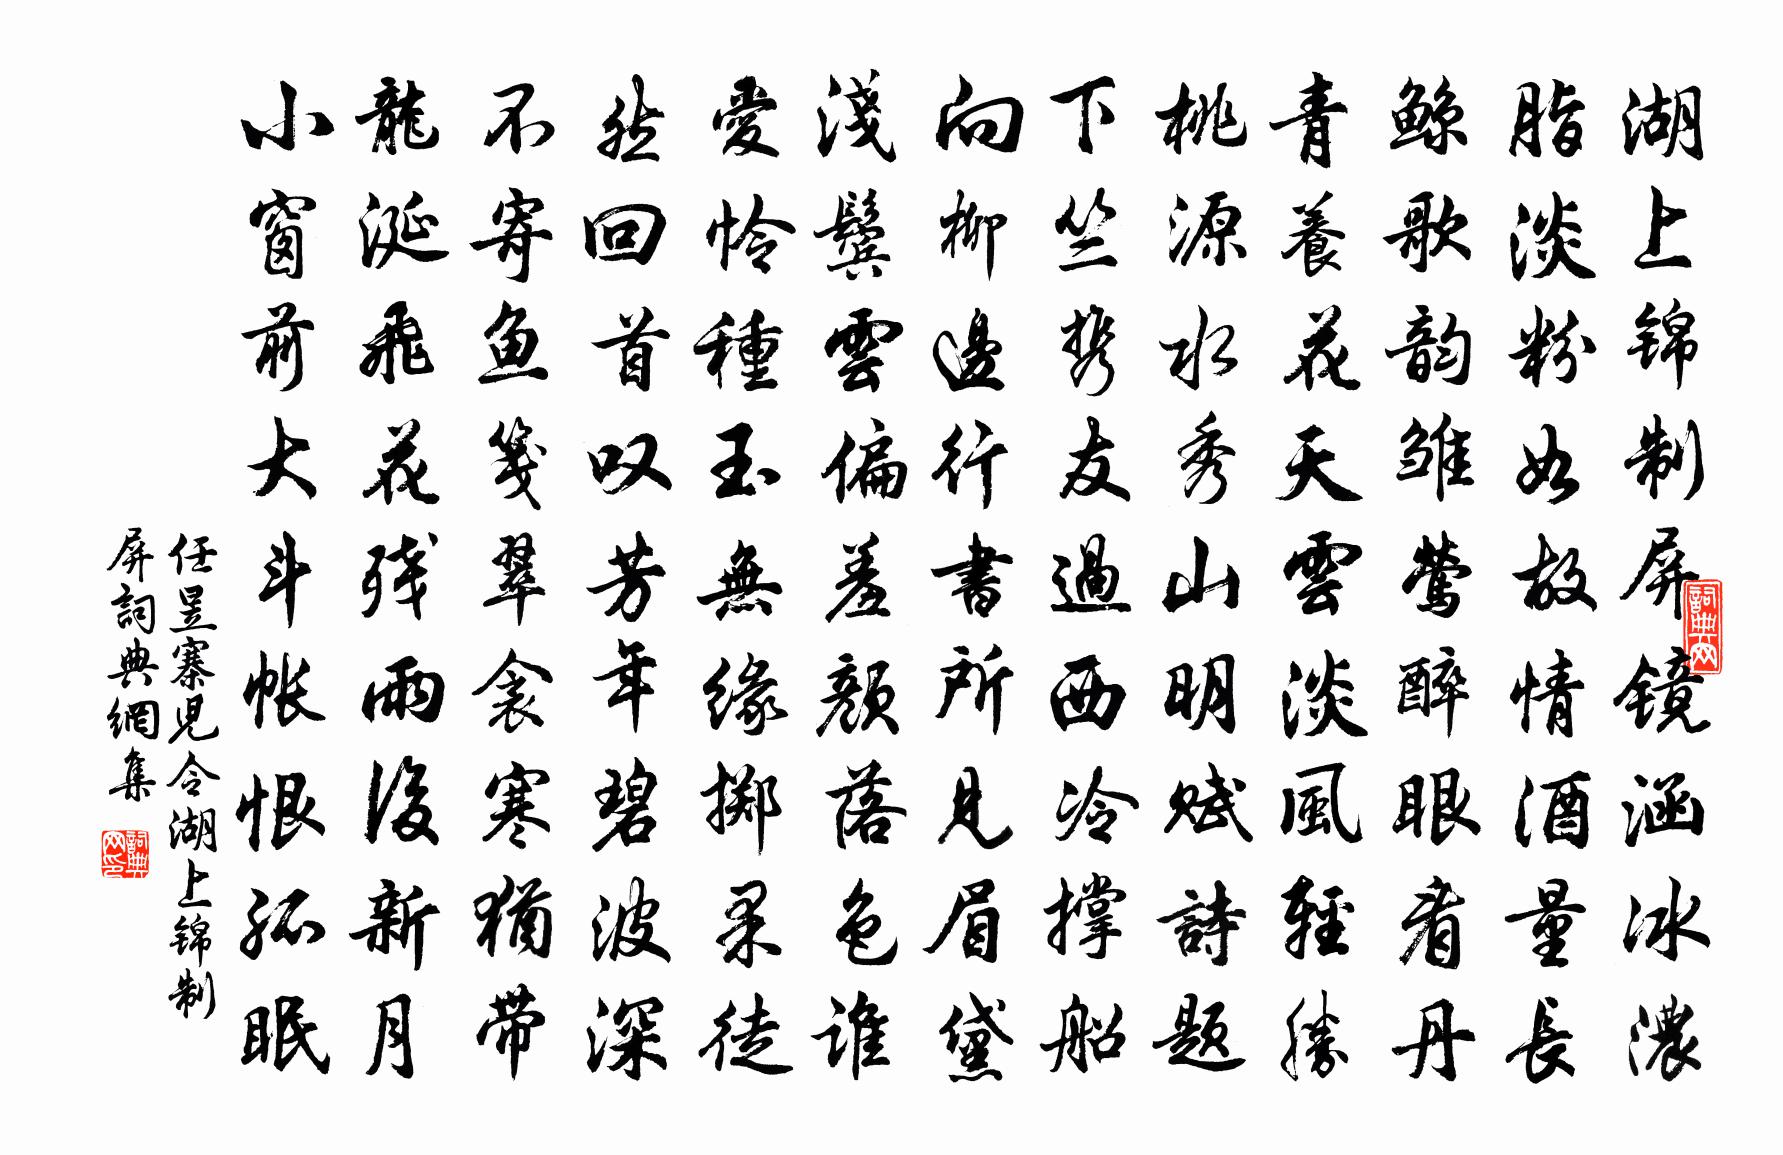 湖上锦制屏镜涵冰濃
脂淡粉如故情酒量長
鲸歌韵雏莺醉眼看丹
青養花天雲淡風輕勝
桃源水秀山明赋詩題
下竺携友過西泠撑船
向柳邊行書所見眉黛
淺鬓雲偏羞颜落色谁
愛怜種玉無缘掷果徒
然回首叹芳年碧波深
不寄鱼笺翠衾寒犹带
龍涎飛花残雨後新月
小窗前大斗帐恨孤眠
任昱寨児令湖上锦制
屏詞典網集
詞典网
詞典网印